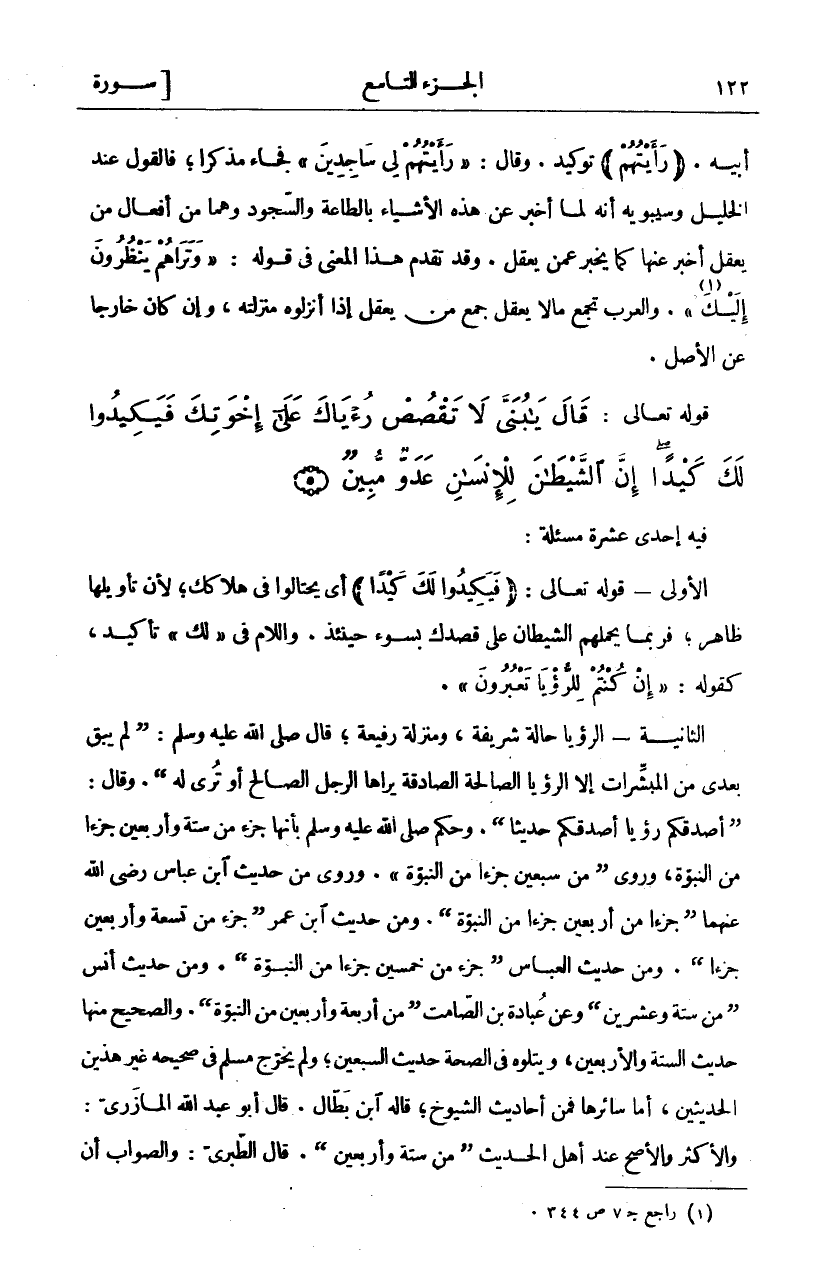 ١٢٢ الجزء التاسع [ سورة
أبيه . ﴿ رَأَيْتُهُمْ ﴾ توكيد . وقال : « رَأَيْتُهُمْ لِي سَاجِدِينَ » فجاء مذكرا ؛ فالقول عند
الخليل وسيبويه أنه لما أخبر عن هذه الأشياء بالطاعة والسّجود وهما من أفعال من
يعقل أخبر عنها كما يخبر عمن يعقل . وقد تقدم هذا المعنى فى قوله : « وَتَرَاهُمْ يَنْظُرُونَ
إِلَيْكَ (١) » . والعرب تجمع مالا يعقل جمع من يعقل إذا أنزلوه منزلته ، وإن كان خارجا
عن الأصل .
قوله تعالى : قَالَ يَٰبُنَىَّ لَا تَقْصُصْ رُءْيَاكَ عَلَىٰٓ إِخْوَتِكَ فَيَكِيدُوا
لَكَ كَيْدًا ۖ إِنَّ ٱلشَّيْطَٰنَ لِلْإِنسَٰنِ عَدُوٌّ مُّبِينٌ ۝٥
فيه إحدى عشرة مسئلة :
الأولى — قوله تعالى : ﴿ فَيَكِيدُوا لَكَ كَيْدًا ﴾ أى يحتالوا فى هلاكك ؛ لأن تأويلها
ظاهر ؛ فربما يحملهم الشيطان على قصدك بسوء حينئذ . واللام فى « لك » تأكيد ،
كقوله : « إِنْ كُنْتُمْ لِلرُّؤْيَا تَعْبُرُونَ » .
الثانية — الرؤيا حالة شريفة ، ومنزلة رفيعة ؛ قال صلى الله عليه وسلم : ” لم يبق
بعدى من المبشِّرات إلا الرؤيا الصالحة الصادقة يراها الرجل الصالح أو تُرى له “ . وقال :
” أصدقكم رؤيا أصدقكم حديثا “ . وحكم صلى الله عليه وسلم بأنها جزء من ستة وأربعين جزءا
من النبوّة ، وروى ” من سبعين جزءا من النبوّة » . وروى من حديث آبن عباس رضى الله
عنهما ” جزءا من أربعين جزءا من النبوّة “ . ومن حديث آبن عمر ” جزء من تسعة وأربعين
جزءا “ . ومن حديث العباس ” جزء من خمسين جزءا من النبوّة “ . ومن حديث أنس
” من ستة وعشرين “ وعن عُبادة بن الصّامت ” من أربعة وأربعين من النبوّة “ . والصحيح منها
حديث الستة والأربعين ، ويتلوه فى الصحة حديث السبعين ؛ ولم يخرّج مسلم فى صحيحه غير هذين
الحديثين ، أما سائرها فمن أحاديث الشيوخ ؛ قاله آبن بَطّال . قال أبو عبد الله المازَرىّ :
والأكثر والأصح عند أهل الحديث ” من ستة وأربعين “ . قال الطّبرىّ : والصواب أن
(١) راجع جـ ٧ ص ٣٤٤ .